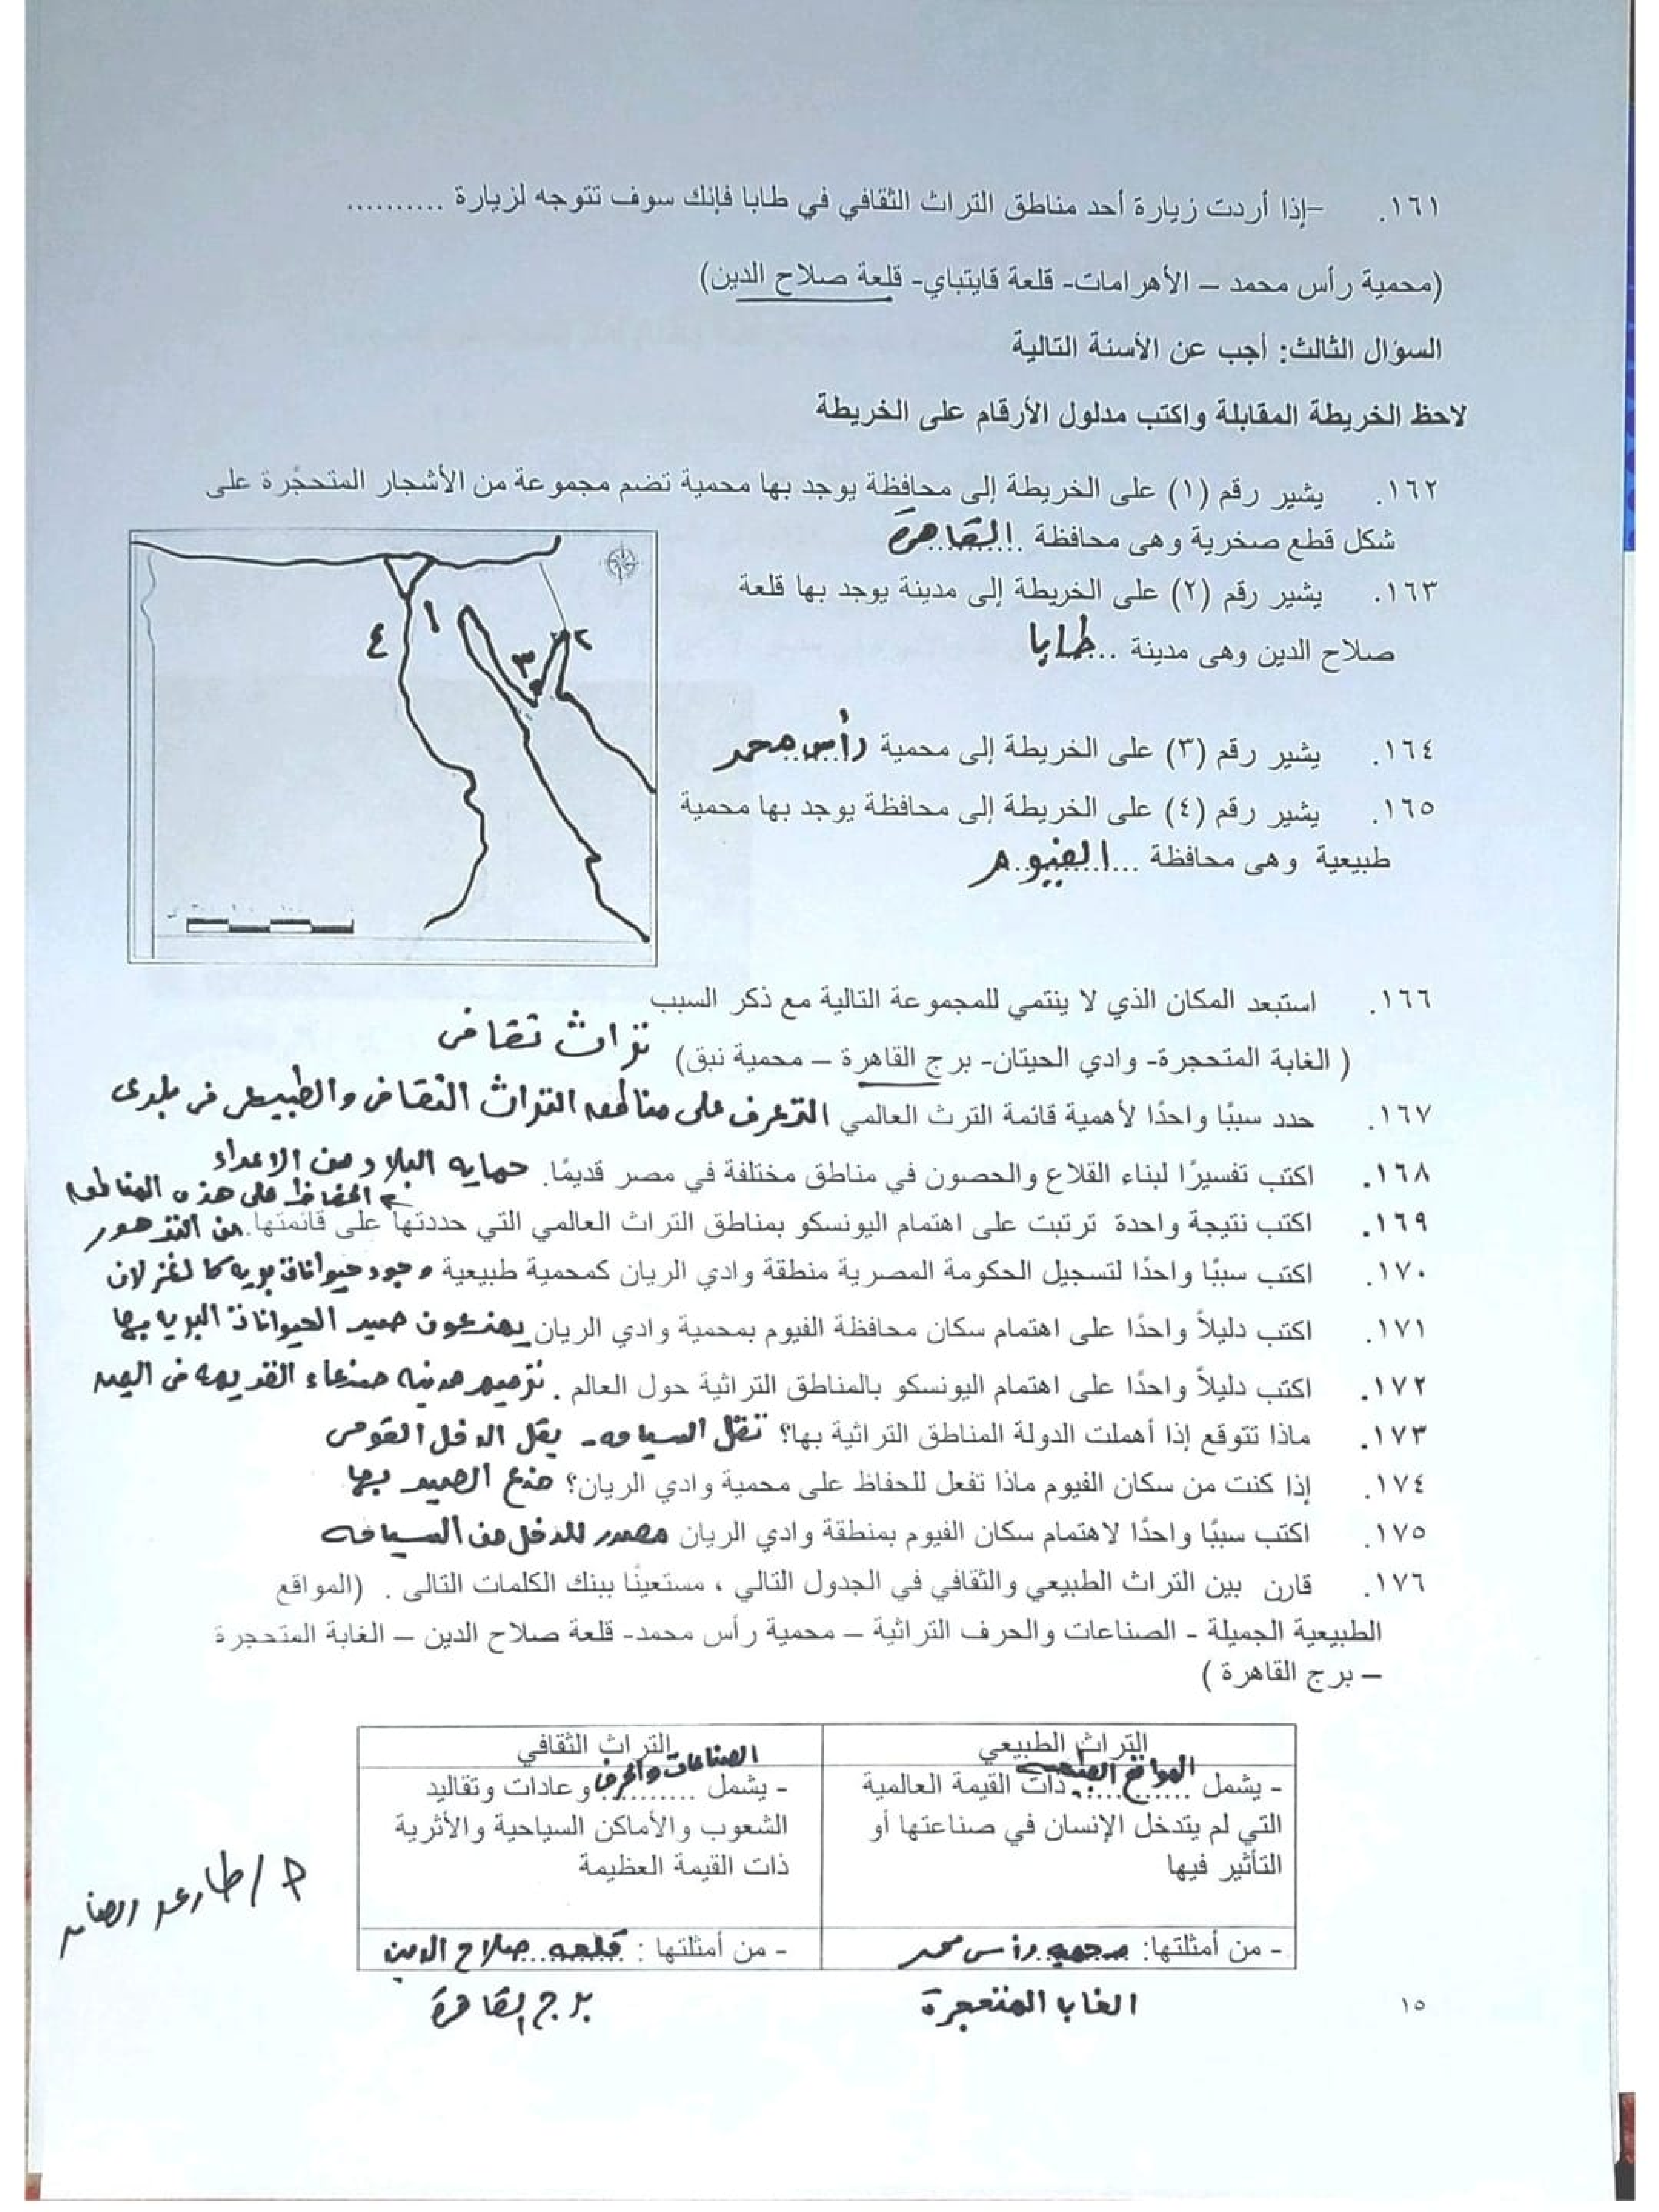 ١٦١. -إذا أردت زيارة أحد مناطق التراث الثقافي في طابا فإنك سوف تتوجه لزيارة ..........
(محمية رأس محمد – الأهرامات- قلعة قايتباي- قلعة صلاح الدين)
السؤال الثالث: أجب عن الأسئة التالية
لاحظ الخريطة المقابلة واكتب مدلول الأرقام على الخريطة
١٦٢. يشير رقم (١) على الخريطة إلى محافظة يوجد بها محمية تضم مجموعة من الأشجار المتحجّرة على
شكل قطع صخرية وهى محافظة القاهرة
١٦٣. يشير رقم (٢) على الخريطة إلى مدينة يوجد بها قلعة
صلاح الدين وهى مدينة .. طابا
١ ٢ ٣ ٤
١٦٤. يشير رقم (٣) على الخريطة إلى محمية رأس محمد
١٦٥. يشير رقم (٤) على الخريطة إلى محافظة يوجد بها محمية
طبيعية وهى محافظة ... الفيوم
١٦٦. استبعد المكان الذي لا ينتمي للمجموعة التالية مع ذكر السبب
( الغابة المتحجرة- وادي الحيتان- برج القاهرة – محمية نبق) تراث ثقافى
١٦٧. حدد سببًا واحدًا لأهمية قائمة الترث العالمي التعرف على مناطق التراث الثقافى والطبيعى فى بلدى
١٦٨. اكتب تفسيرًا لبناء القلاع والحصون في مناطق مختلفة في مصر قديمًا. حمايه البلاد من الاعداء
الحفاظ على هذه المناطق
١٦٩. اكتب نتيجة واحدة ترتبت على اهتمام اليونسكو بمناطق التراث العالمي التي حددتها على قائمتها. من التدهور
١٧٠. اكتب سببًا واحدًا لتسجيل الحكومة المصرية منطقة وادي الريان كمحمية طبيعية وجود حيوانات بريه كالغزلان
١٧١. اكتب دليلاً واحدًا على اهتمام سكان محافظة الفيوم بمحمية وادي الريان يمنعون صيد الحيوانات البريه بها
١٧٢. اكتب دليلاً واحدًا على اهتمام اليونسكو بالمناطق التراثية حول العالم . ترميم مدينه صنعاء القديمه فى اليمن
١٧٣. ماذا تتوقع إذا أهملت الدولة المناطق التراثية بها؟ تقل السياحه - يقل الدخل القومى
١٧٤. إذا كنت من سكان الفيوم ماذا تفعل للحفاظ على محمية وادي الريان؟ منع الصيد بها
١٧٥. اكتب سببًا واحدًا لاهتمام سكان الفيوم بمنطقة وادي الريان مصدر للدخل من السياحه
١٧٦. قارن بين التراث الطبيعي والثقافي في الجدول التالي ، مستعينًا ببنك الكلمات التالى . (المواقع
الطبيعية الجميلة - الصناعات والحرف التراثية – محمية رأس محمد- قلعة صلاح الدين – الغابة المتحجرة
– برج القاهرة )
التراث الطبيعي
- يشمل المواقع الطبيعية ذات القيمة العالمية
التي لم يتدخل الإنسان في صناعتها أو
التأثير فيها
- من أمثلتها: محميه رأس محمد
الغابا المتحجرة
التراث الثقافي
- يشمل الصناعات والحرف وعادات وتقاليد
الشعوب والأماكن السياحية والأثرية
ذات القيمة العظيمة
- من أمثلتها : قلعه صلاح الدين
برج القاهرة
١٥